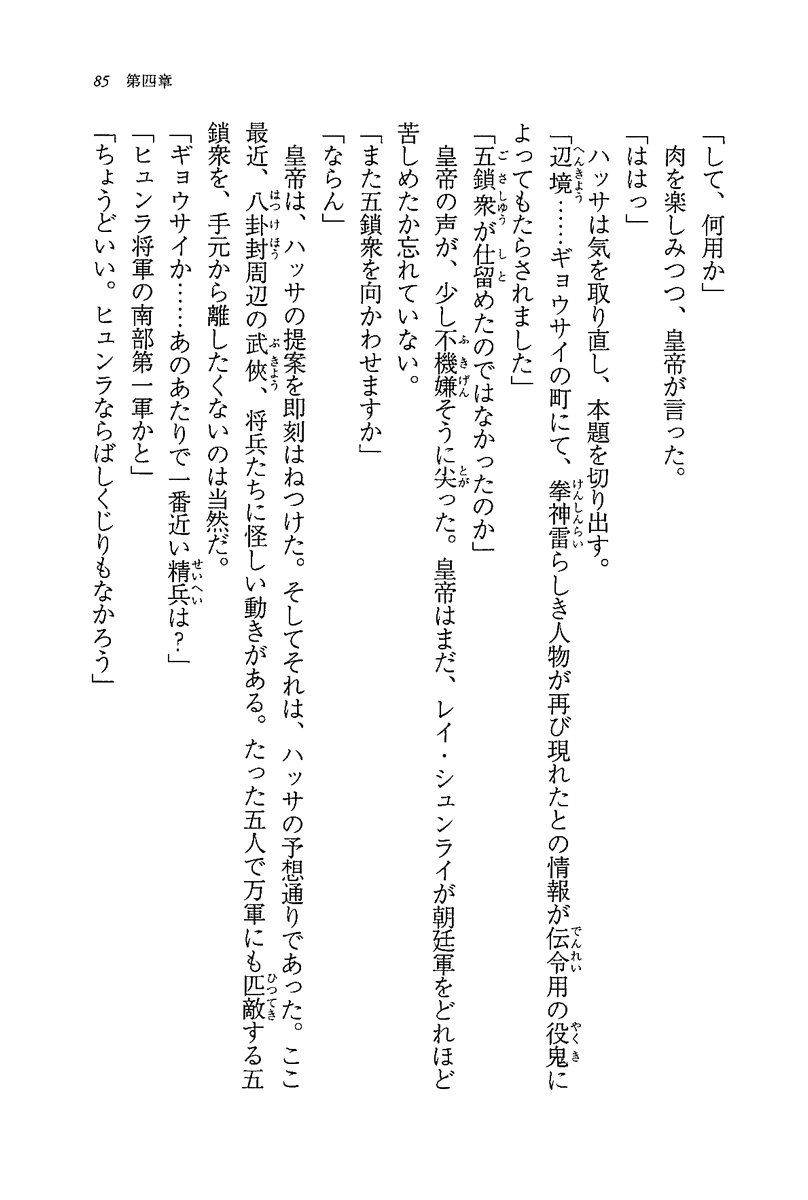 85　第四章
「して、何用か」
　肉を楽しみつつ、皇帝が言った。
「ははっ」
　ハッサは気を取り直し、本題を切り出す。
「辺境……ギョウサイの町にて、拳神雷らしき人物が再び現れたとの情報が伝令用の役鬼に
よってもたらされました」
「五鎖衆が仕留めたのではなかったのか」
　皇帝の声が、少し不機嫌そうに尖った。皇帝はまだ、レイ・シュンライが朝廷軍をどれほど
苦しめたか忘れていない。
「また五鎖衆を向かわせますか」
「ならん」
　皇帝は、ハッサの提案を即刻はねつけた。そしてそれは、ハッサの予想通りであった。ここ
最近、八卦封周辺の武俠、将兵たちに怪しい動きがある。たった五人で万軍にも匹敵する五
鎖衆を、手元から離したくないのは当然だ。
「ギョウサイか……あのあたりで一番近い精兵は？」
「ヒュンラ将軍の南部第一軍かと」
「ちょうどいい。ヒュンラならばしくじりもなかろう」